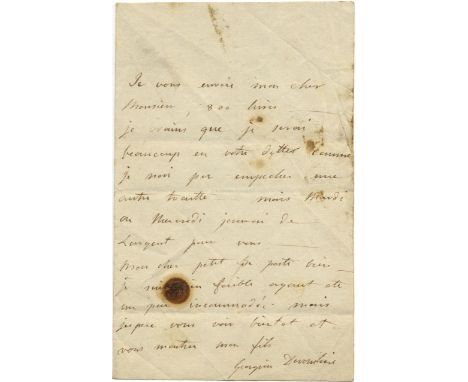 Je vous envoie mon cher
Monsieur, 800 livres
je crains que je serai
beaucoup en votre dettes comme
je n'ai pu empecher une
autre mais Mardi
ou Mercredi j'aurai de
L'argent pour vous —
Mon cher petit se porte bien —
je suis faible ayant été
un peu incommodée. mais
j'espere vous voir bientot et
vous montrer mon fils
Georgina Devonshire